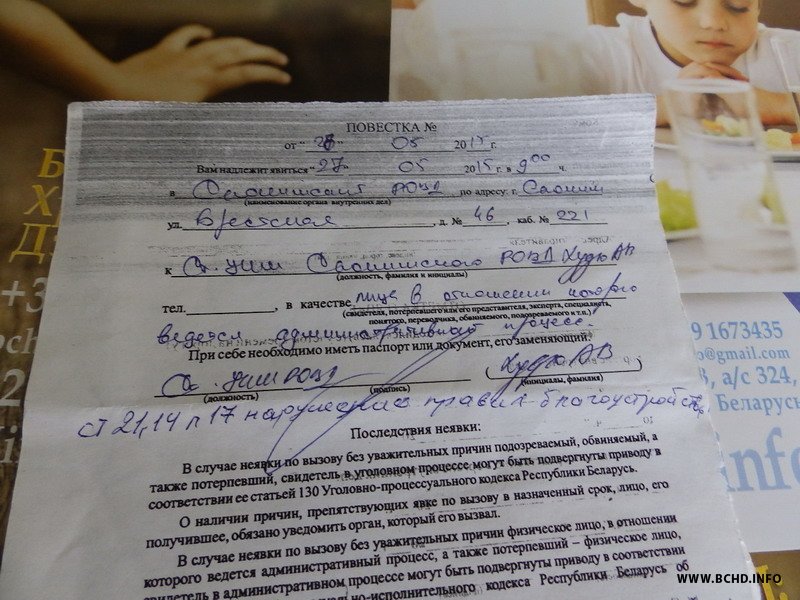 ПОВЕСТКА №
от "28" 05 2015 г.
Вам надлежит явиться "27" 05 2015 г. в 9 00 ч.
в Слонимский РОВД по адресу: г. Слоним
(наименование органа внутренних дел)
ул. Брестская, д. № 46, каб. № 221
к Ст. УИМ Слонимского РОВД Худю АВ
(должность, фамилия и инициалы)
тел. , в качестве лица в отношении которого
(свидетеля, потерпевшего или его представителя, эксперта, специалиста,
понятого, переводчика, обвиняемого, подозреваемого и т.п.)
ведется административный процесс.
При себе необходимо иметь паспорт или документ, его заменяющий.
Ст. УИМ РОВД (Худю АВ)
(должность) (подпись) (инициалы, фамилия)
ст 21,14 п 17 нарушение правил благоустройства
Последствия неявки:
В случае неявки по вызову без уважительных причин подозреваемый, обвиняемый, а
также потерпевший, свидетель в уголовном процессе могут быть подвергнуты приводу в
соответствии ее статьей 130 Уголовно-процессуального кодекса Республики Беларусь.
О наличии причин, препятствующих явке по вызову в назначенный срок, лицо, его
получившее, обязано уведомить орган, который его вызвал.
В случае неявки по вызову без уважительных причин физическое лицо, в отношении
которого ведется административный процесс, а также потерпевший – физическое лицо,
свидетель в административном процессе могут быть подвергнуты приводу в соответствии
кодекса Республики Беларусь об
9 1673435
@gmail.com
а/с 324,
Беларусь
info
WWW.BCHD.INFO